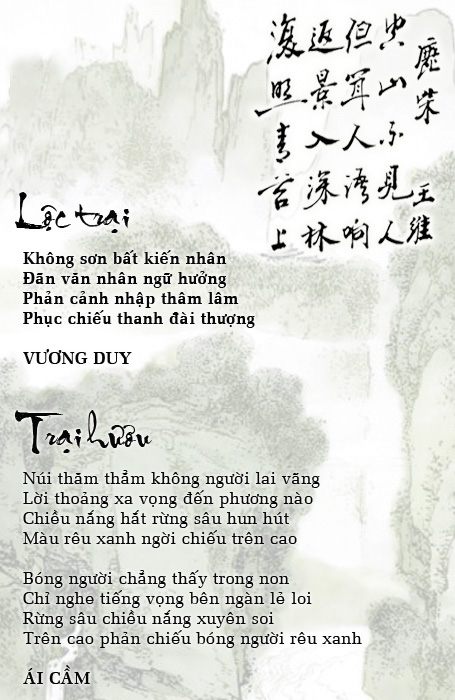 鹿柴
王維
空山不見人
但聞人語响
返景入深林
復照青苔上
Lộc trại
Không sơn bất kiến nhân
Đãn văn nhân ngữ hưởng
Phản cảnh nhập thâm lâm
Phục chiếu thanh đài thượng
VƯƠNG DUY
Trại hươu
Núi thăm thẳm không người lai vãng
Lời thoảng xa vọng đến phương nào
Chiều nắng hắt rừng sâu hun hút
Màu rêu xanh ngời chiếu trên cao
Bóng người chẳng thấy trong non
Chỉ nghe tiếng vọng bên ngàn lẻ loi
Rừng sâu chiều nắng xuyên soi
Trên cao phản chiếu bóng người rêu xanh
ÁI CẦM